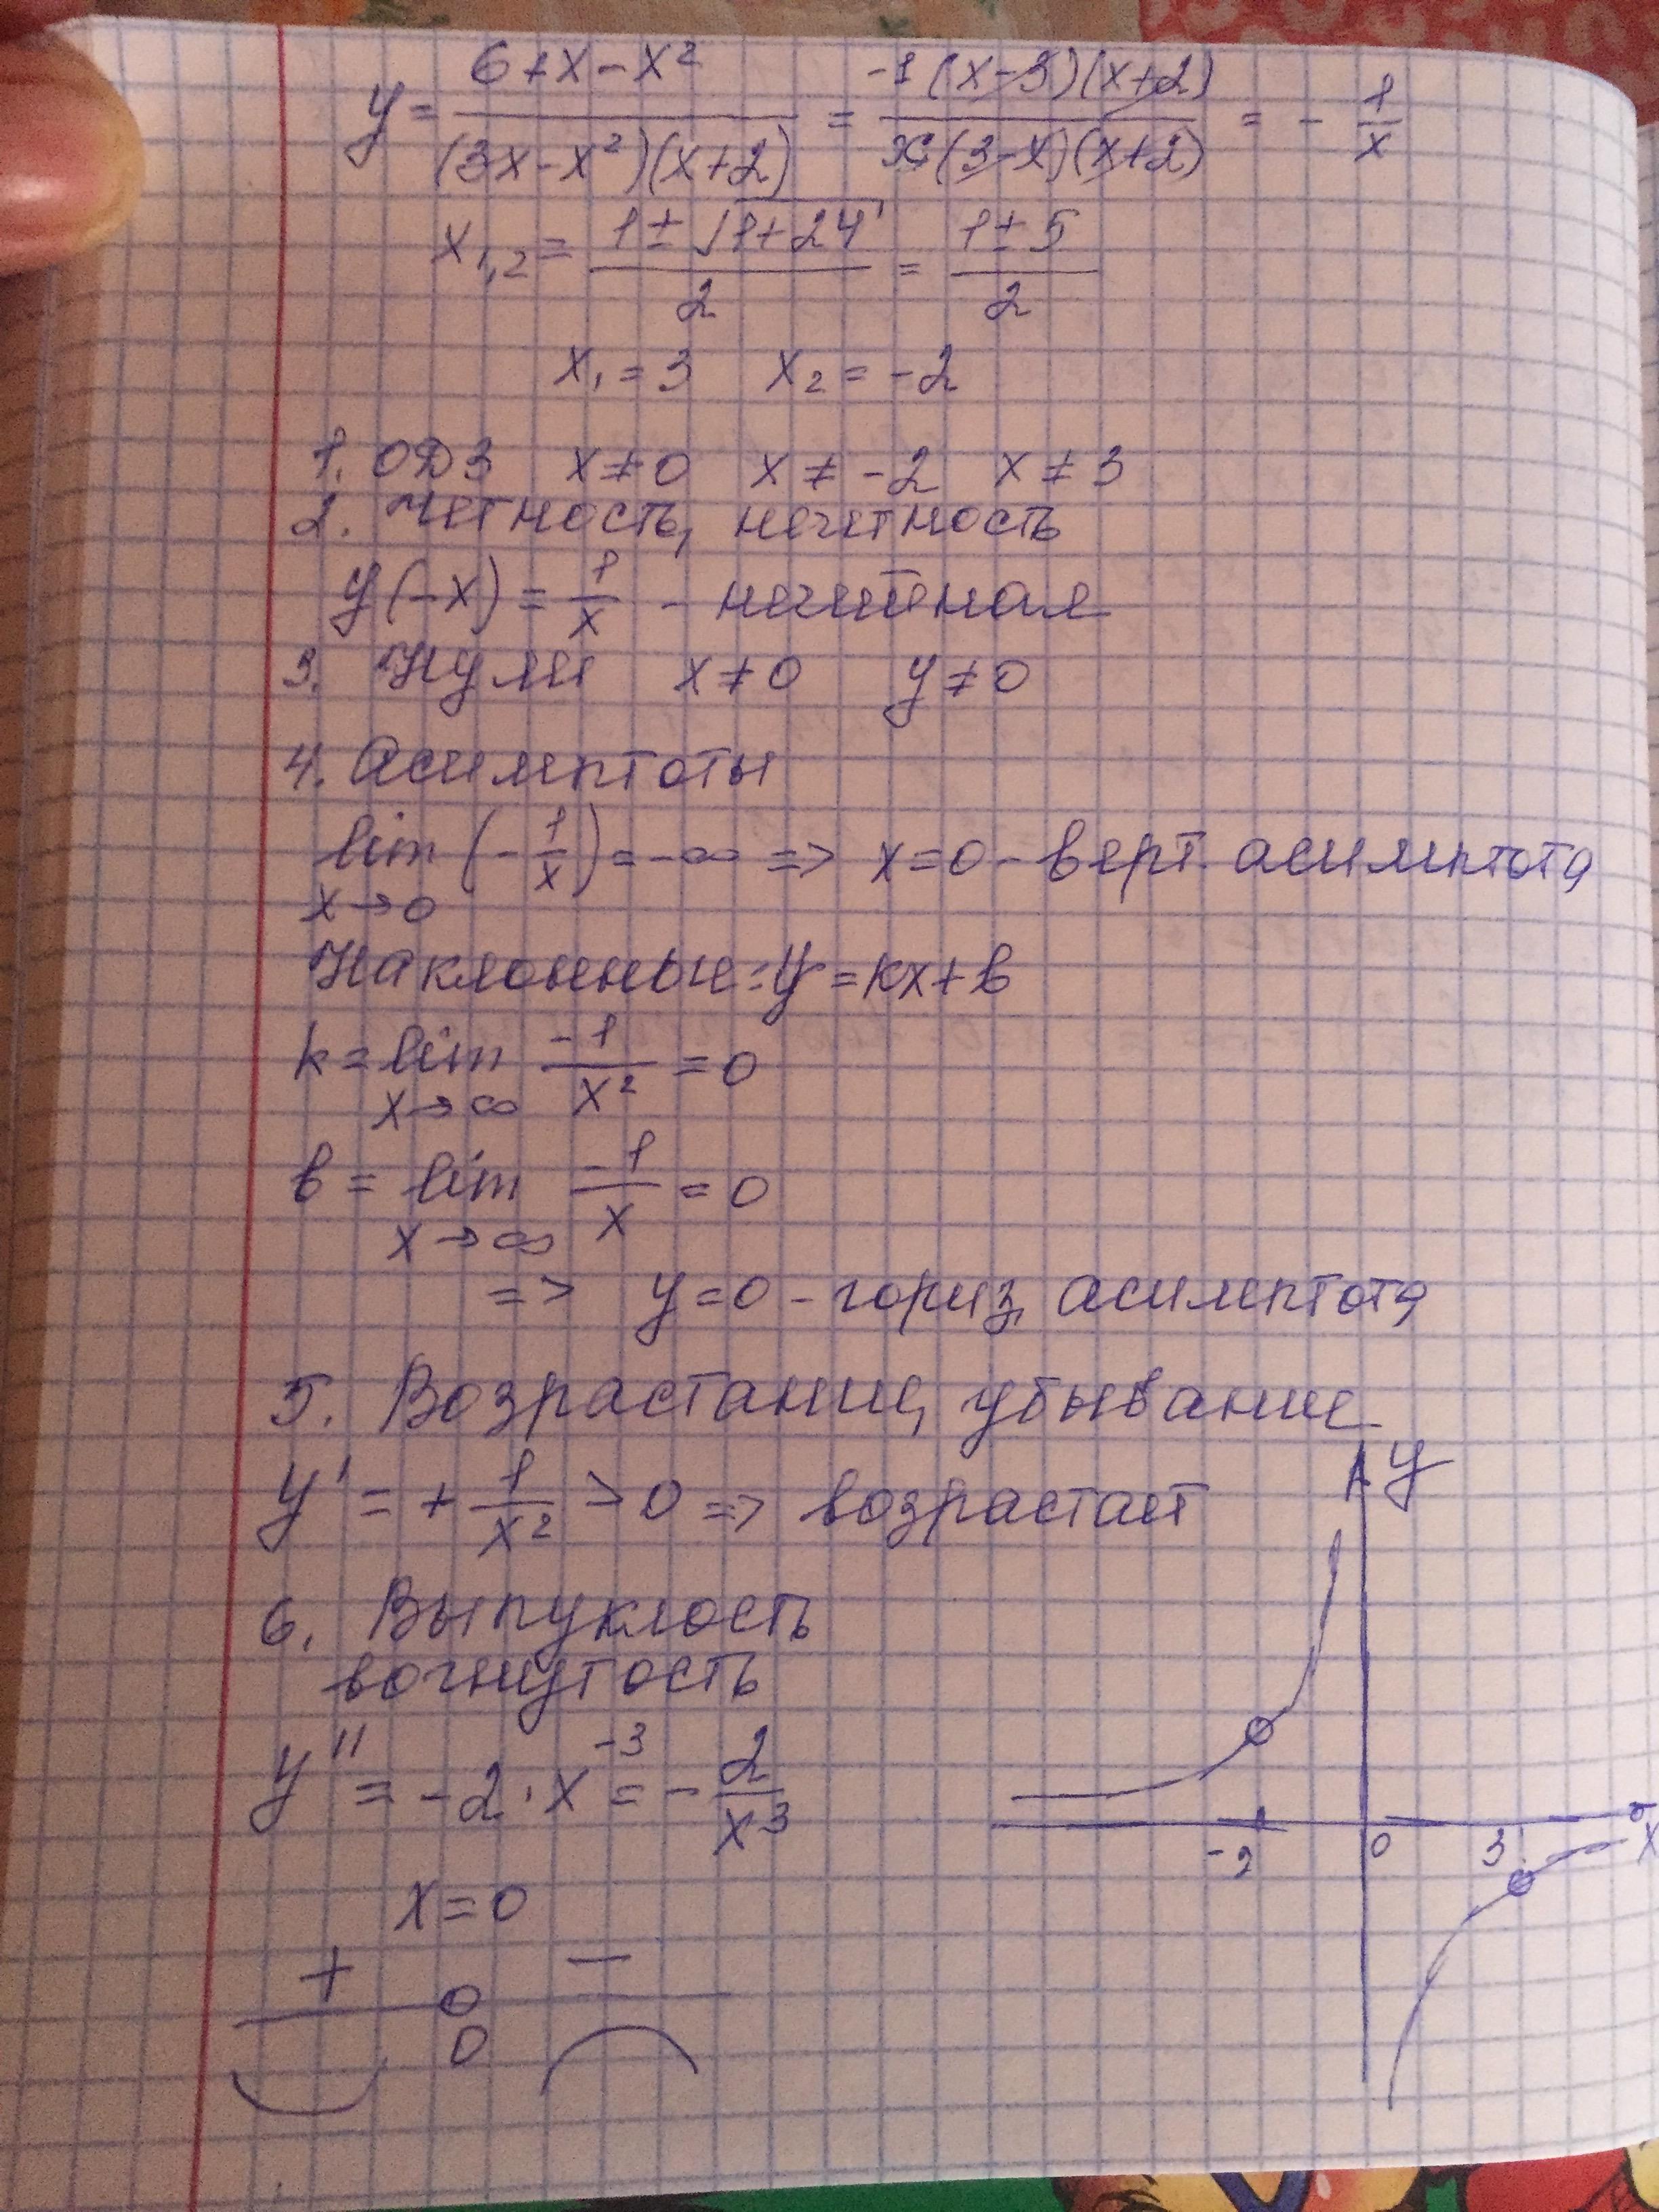 y = (6+x-x²)/((3x-x²)(x+2)) = (-1(x-3)(x+2))/(x(3-x)(x+2)) = - 1/x
x₁,₂ = (1±√(1+24))/2 = (1±5)/2
x₁ = 3 x₂ = -2
1. ОДЗ x≠0 x≠-2 x≠3
2. Четность, нечетность
y(-x) = 1/x - нечетная
3. Нули x≠0 y≠0
4. Асимптоты
lim x→0 (-1/x) = -∞ => x=0 - верт. асимптота
Наклонные: y=kx+b
k = lim x→∞ -1/x² = 0
b = lim x→∞ -1/x = 0
=> y=0 - гориз. асимптота
5. Возрастание, убывание
y' = + 1/x² > 0 => возрастает
6. Выпуклость
вогнутость
y'' = -2·x⁻³ = - 2/x³
x=0
+ −
0
y
-2 0 3 x